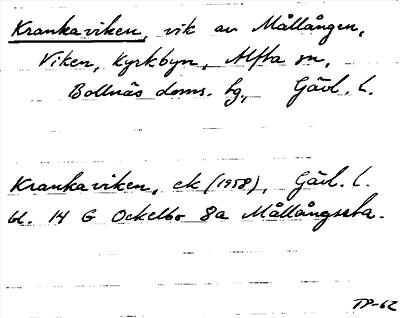 Krankaviken, vik av Mållången,
Viken, Kyrkbyn, Alfta sn,
Bollnäs doms. hg, Gävl. l.
Krankaviken, ek (1958), Gävl. l.
bl. 14 G Ockelbo 8a Mållångsta.
TP-62